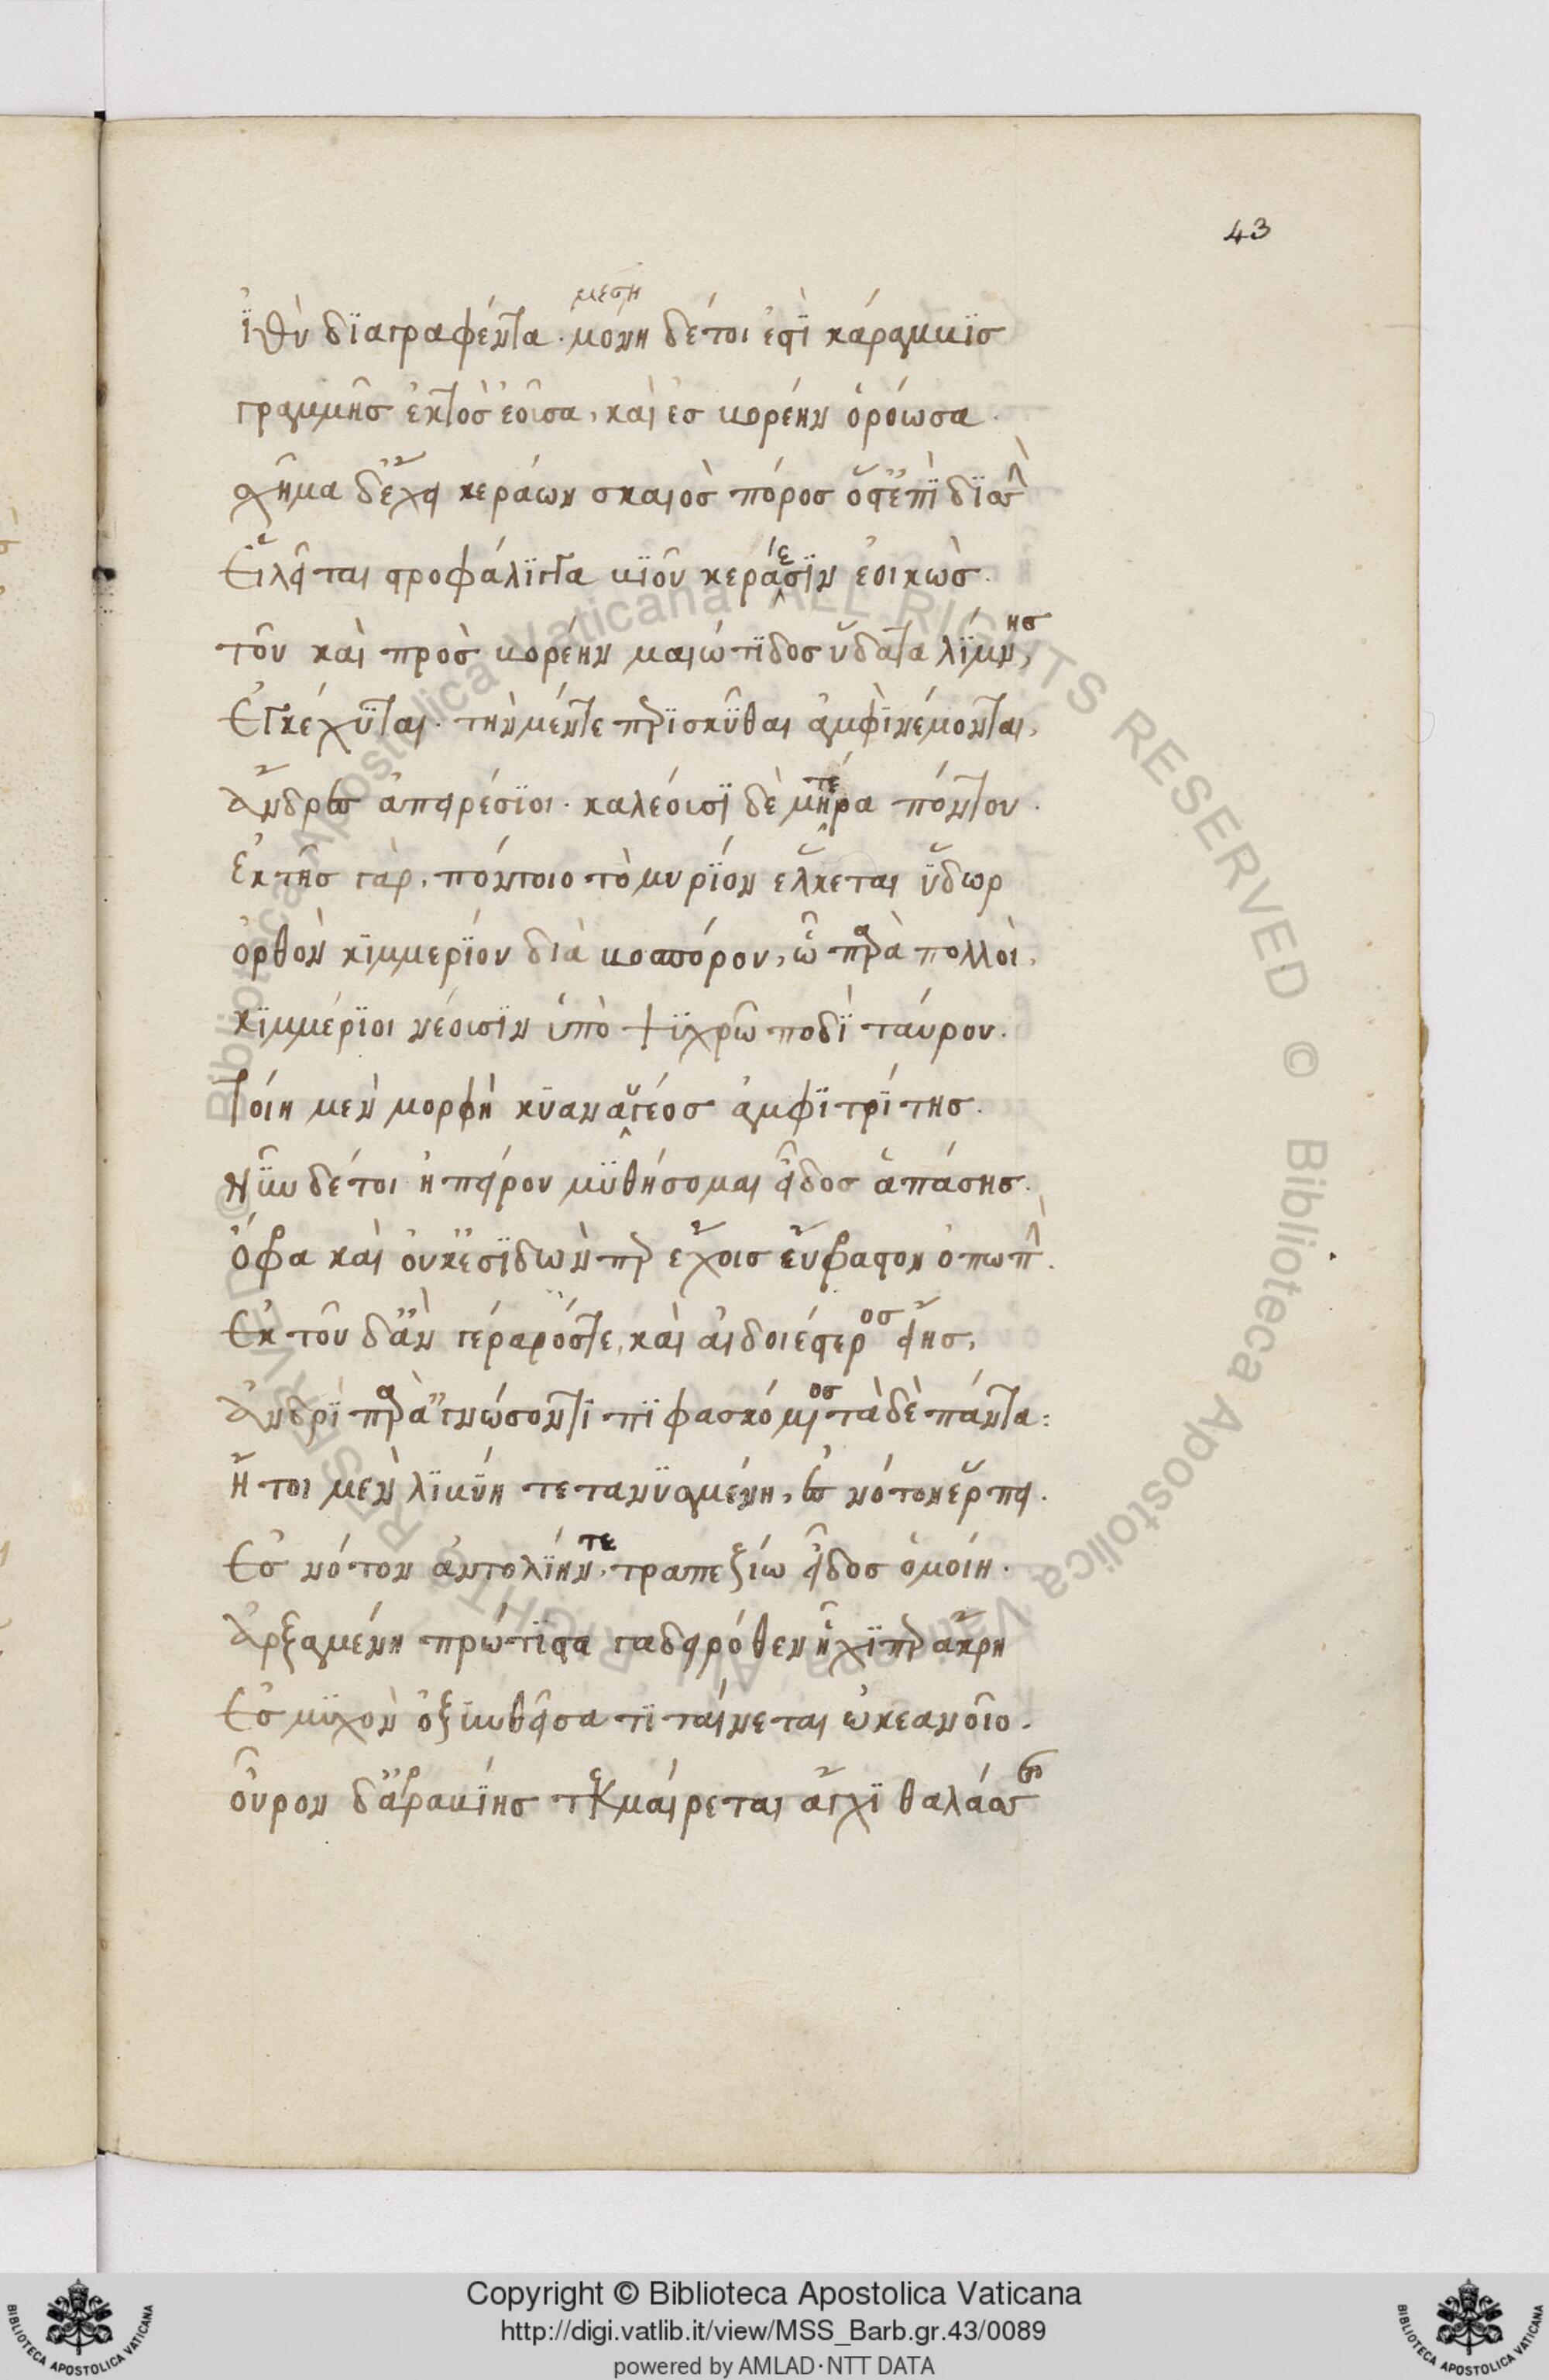 43
μεση
ἰθὺν διαγραφέντα. μόνη δέ τοι ἐστὶ κάραμβις
γραμμῆς ἐκτὸς ἐοῦσα, καὶ ἐς βορέην ὁρόωσα.
σχῆμα δ' ἔχει κεράων σκαιὸς πόρος ὅστ' ἐπὶ δισσὰς
Εἰλεῖται στροφάλιγγα βιοῦ κεράεσσιν ἐοικώς.
τοῦ καὶ πρὸς βορέην μαιώτιδος ὕδατα λίμνης,
Ἐγκέχυται. τὴν μέν τε περὶ σκῦθαι ἀμφινέμονται,
Ἄνδρες ἀπειρέσιοι. καλέουσι δὲ μητέρα πόντου.
Ἐκ τῆς γὰρ, πόντοιο τὸ μυρίον ἕλκεται ὕδωρ
ὀρθὸν κιμμερίου διὰ βοσπόρου, ᾧ παρὰ πολλοὶ,
κιμμέριοι νέουσιν ὑπὸ ψυχρῷ ποδὶ ταύρου.
Τοίη μὲν μορφὴ κυαναυγέος ἀμφιτρίτης.
Νῦν δέ τοι ἠπείρου μυθήσομαι εἶδος ἁπάσης.
Ὄφρα καὶ οὐκ ἐσιδών περ ἔχοις εὔφραστον ὀπωπὴν.
Ἐκ τοῦ δ' ἂν γεραρός τε, καὶ αἰδοιέστερος εἴης,
Ἀνδρὶ παρὰ γνώσοντι πιφασκόμενος τὰ δὲ πάντα:
Ἤτοι μὲν λιβύη τετανυσμένη, ἐς νότον ἕρπει.
Ἐς νότον ἀντολίην τε, τραπεζίω εἶδος ὁμοίη.
Ἀρξαμένη πρώτιστα γαδειρόθεν ἧχί περ ἄκρη
Ἐς μυχὸν ὀξυνθεῖσα τιταίνεται ὠκεανοῖο.
οὖρον δ' ἀρραβίης τεκμαίρεται ἄγχι θαλάσσης
Copyright © Biblioteca Apostolica Vaticana
http://digi.vatlib.it/view/MSS_Barb.gr.43/0089
powered by AMLAD·NTT DATA